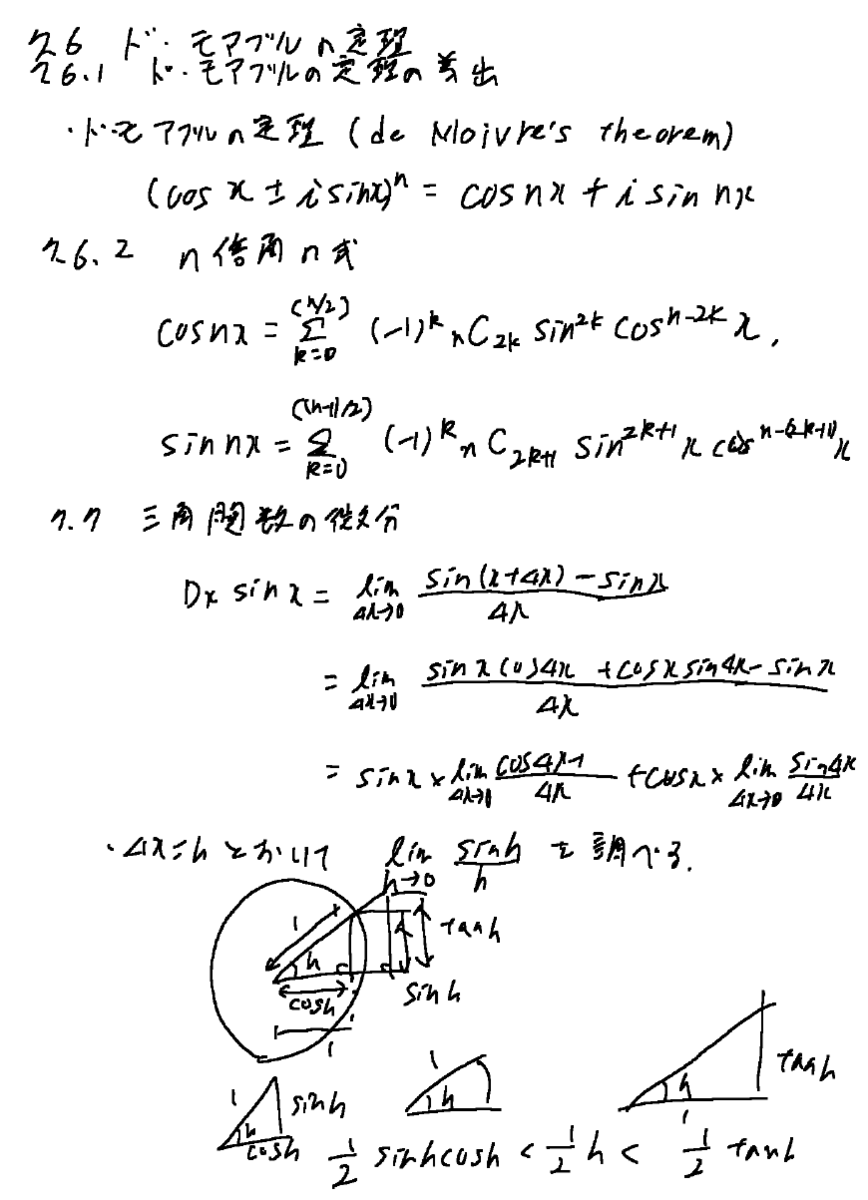 7.6 ド・モアブルの定理
7.6.1 ド・モアブルの定理の導出
・ド・モアブルの定理 (de Moivre's theorem)
(cos x ± i sin x)^n = cos nx + i sin nx
7.6.2 n倍角の式
cos nx = Σ_{k=0}^{(n/2)} (-1)^k nC2k sin^{2k} cos^{n-2k} x,
sin nx = Σ_{k=0}^{((n-1)/2)} (-1)^k nC2k+1 sin^{2k+1} x cos^{n-(2k+1)} x
7.7 三角関数の微分
Dx sin x = lim_{Δx→0} (sin(x+Δx) - sin x)/Δx
= lim_{Δx→0} (sin x cos Δx + cos x sin Δx - sin x)/Δx
= sin x × lim_{Δx→0} (cos Δx-1)/Δx + cos x × lim_{Δx→0} sin Δx/Δx
・Δx=h とおいて lim_{h→0} sin h/h を調べる.
1
h
tan h
cos h
sin h
1
1 sin h
h
cos h
1
h
tan h
h
1
1/2 sin h cos h < 1/2 h < 1/2 tan h